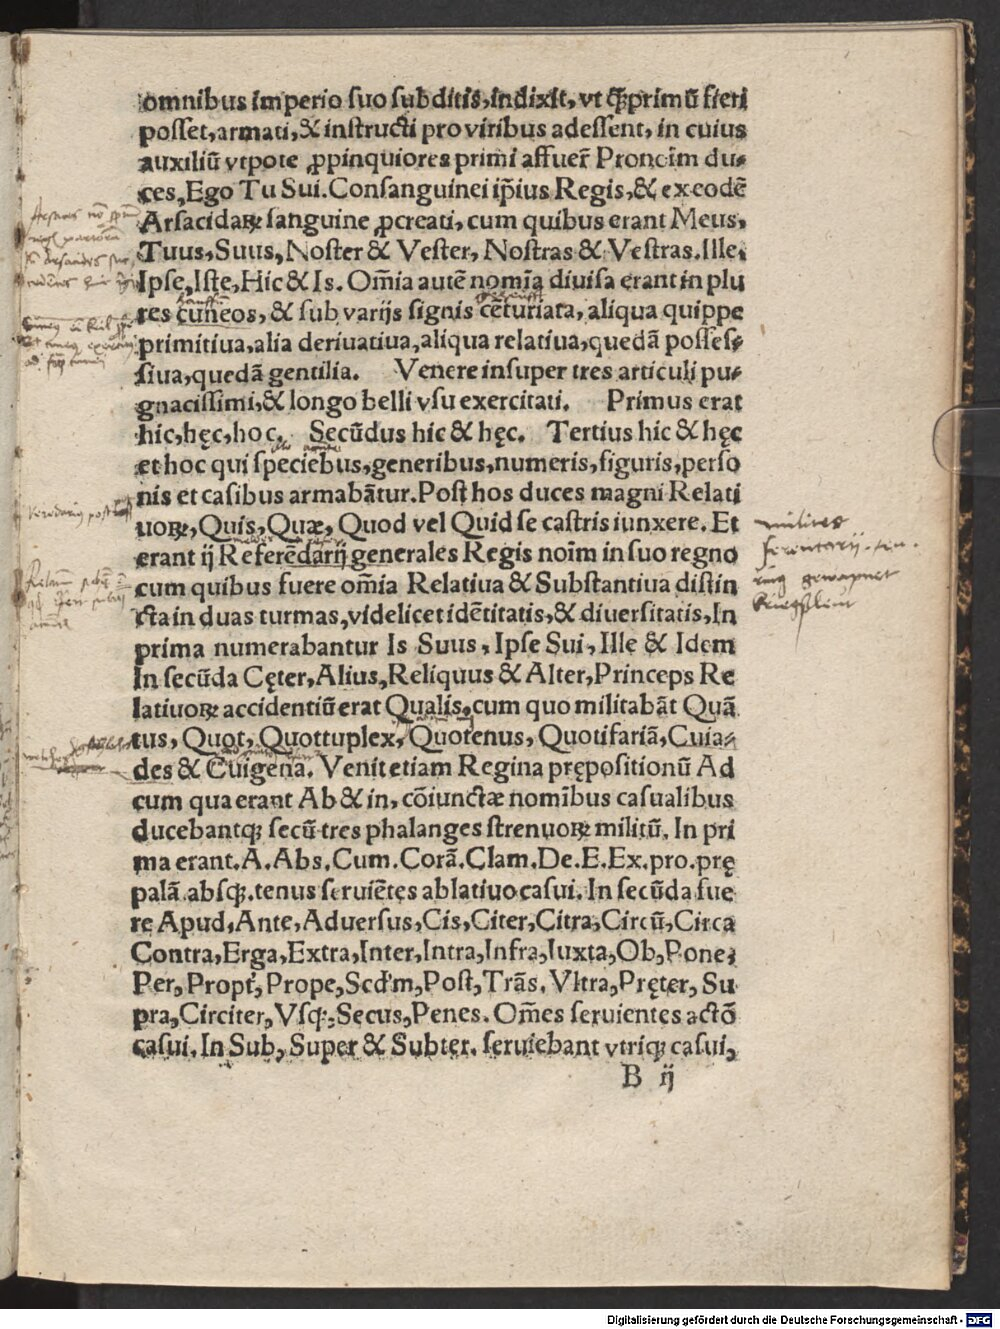 omnibus imperio ſuo ſubditis, indixit, vt q̃primũ fieri
poſſet, armati, & inſtructi pro viribus adeſſent, in cuius
auxiliũ vtpote ꝓpinquiores primi affuer̃ Pronoim du⸗
ces, Ego Tu Sui. Conſanguinei ip̃ius Regis, & ex eodē
Arſacidaꝝ ſanguine ꝓcreati, cum quibus erant Meus,
Tuus, Suus, Noſter & Veſter, Noſtras & Veſtras. Ille,
Ipſe, Iſte, Hic & Is. Om̃ia autē nomīa diuiſa erant in plu
res cuneos, & ſub varijs ſignis cēturiata, aliqua quippe
primitiua, alia deriuatiua, aliqua relatiua, quedã poſſeſ⸗
ſiua, quedã gentilia. Venere inſuper tres articuli pu⸗
gnaciſſimi, & longo belli vſu exercitati. Primus erat
hic, hęc, hoc. Secũdus hic & hęc. Tertius hic & hęc
et hoc qui ſpeciebus, generibus, numeris, figuris, perſo
nis et caſibus armabãtur. Poſt hos duces magni Relati
uoꝝ, Quis, Quæ, Quod vel Quid ſe caſtris iunxere. Et
erant ij Referēdarij generales Regis noim in ſuo regno
cum quibus fuere om̃ia Relatiua & Subſtantiua diſtin
cta in duas turmas, videlicet idētitatis, & diuerſitatis, In
prima numerabantur Is Suus, Ipſe Sui, Ille & Idem
In ſecũda Cęter, Alius, Reliquus & Alter, Princeps Re
latiuoꝝ accidentiũ erat Qualis, cum quo militabãt Quã
tus, Quot, Quottuplex, Quotenus, Quotifariã, Cuia⸗
des & Cuigena. Venit etiam Regina prępoſitionũ Ad
cum qua erant Ab & in, cõiunctæ nomībus caſualibus
ducebantqꝫ ſecũ tres phalanges ſtrenuoꝝ militũ. In pri
ma erant. A. Abs. Cum. Corã. Clam. De. E. Ex. pro. prę
palã. abſqꝫ. tenus ſeruiētes ablatiuo caſui. In ſecũda fue
re Apud, Ante, Aduerſus, Cis, Citer, Citra, Circũ, Circa
Contra, Erga, Extra, Inter, Intra, Infra, Iuxta, Ob, Pone,
Per, Propt̃, Prope, Scd'm, Poſt, Trãs. Vltra, Pręter, Su
pra, Circiter, Vſqꝫ, Secus, Penes. Om̃es ſeruientes actõ
caſui. In Sub, Super & Subter. ſeruiebant vtriqꝫ caſui,
B ij
milites
ferentarii
gewapnet
Digitalisierung gefördert durch die Deutsche Forschungsgemeinschaft - DFG